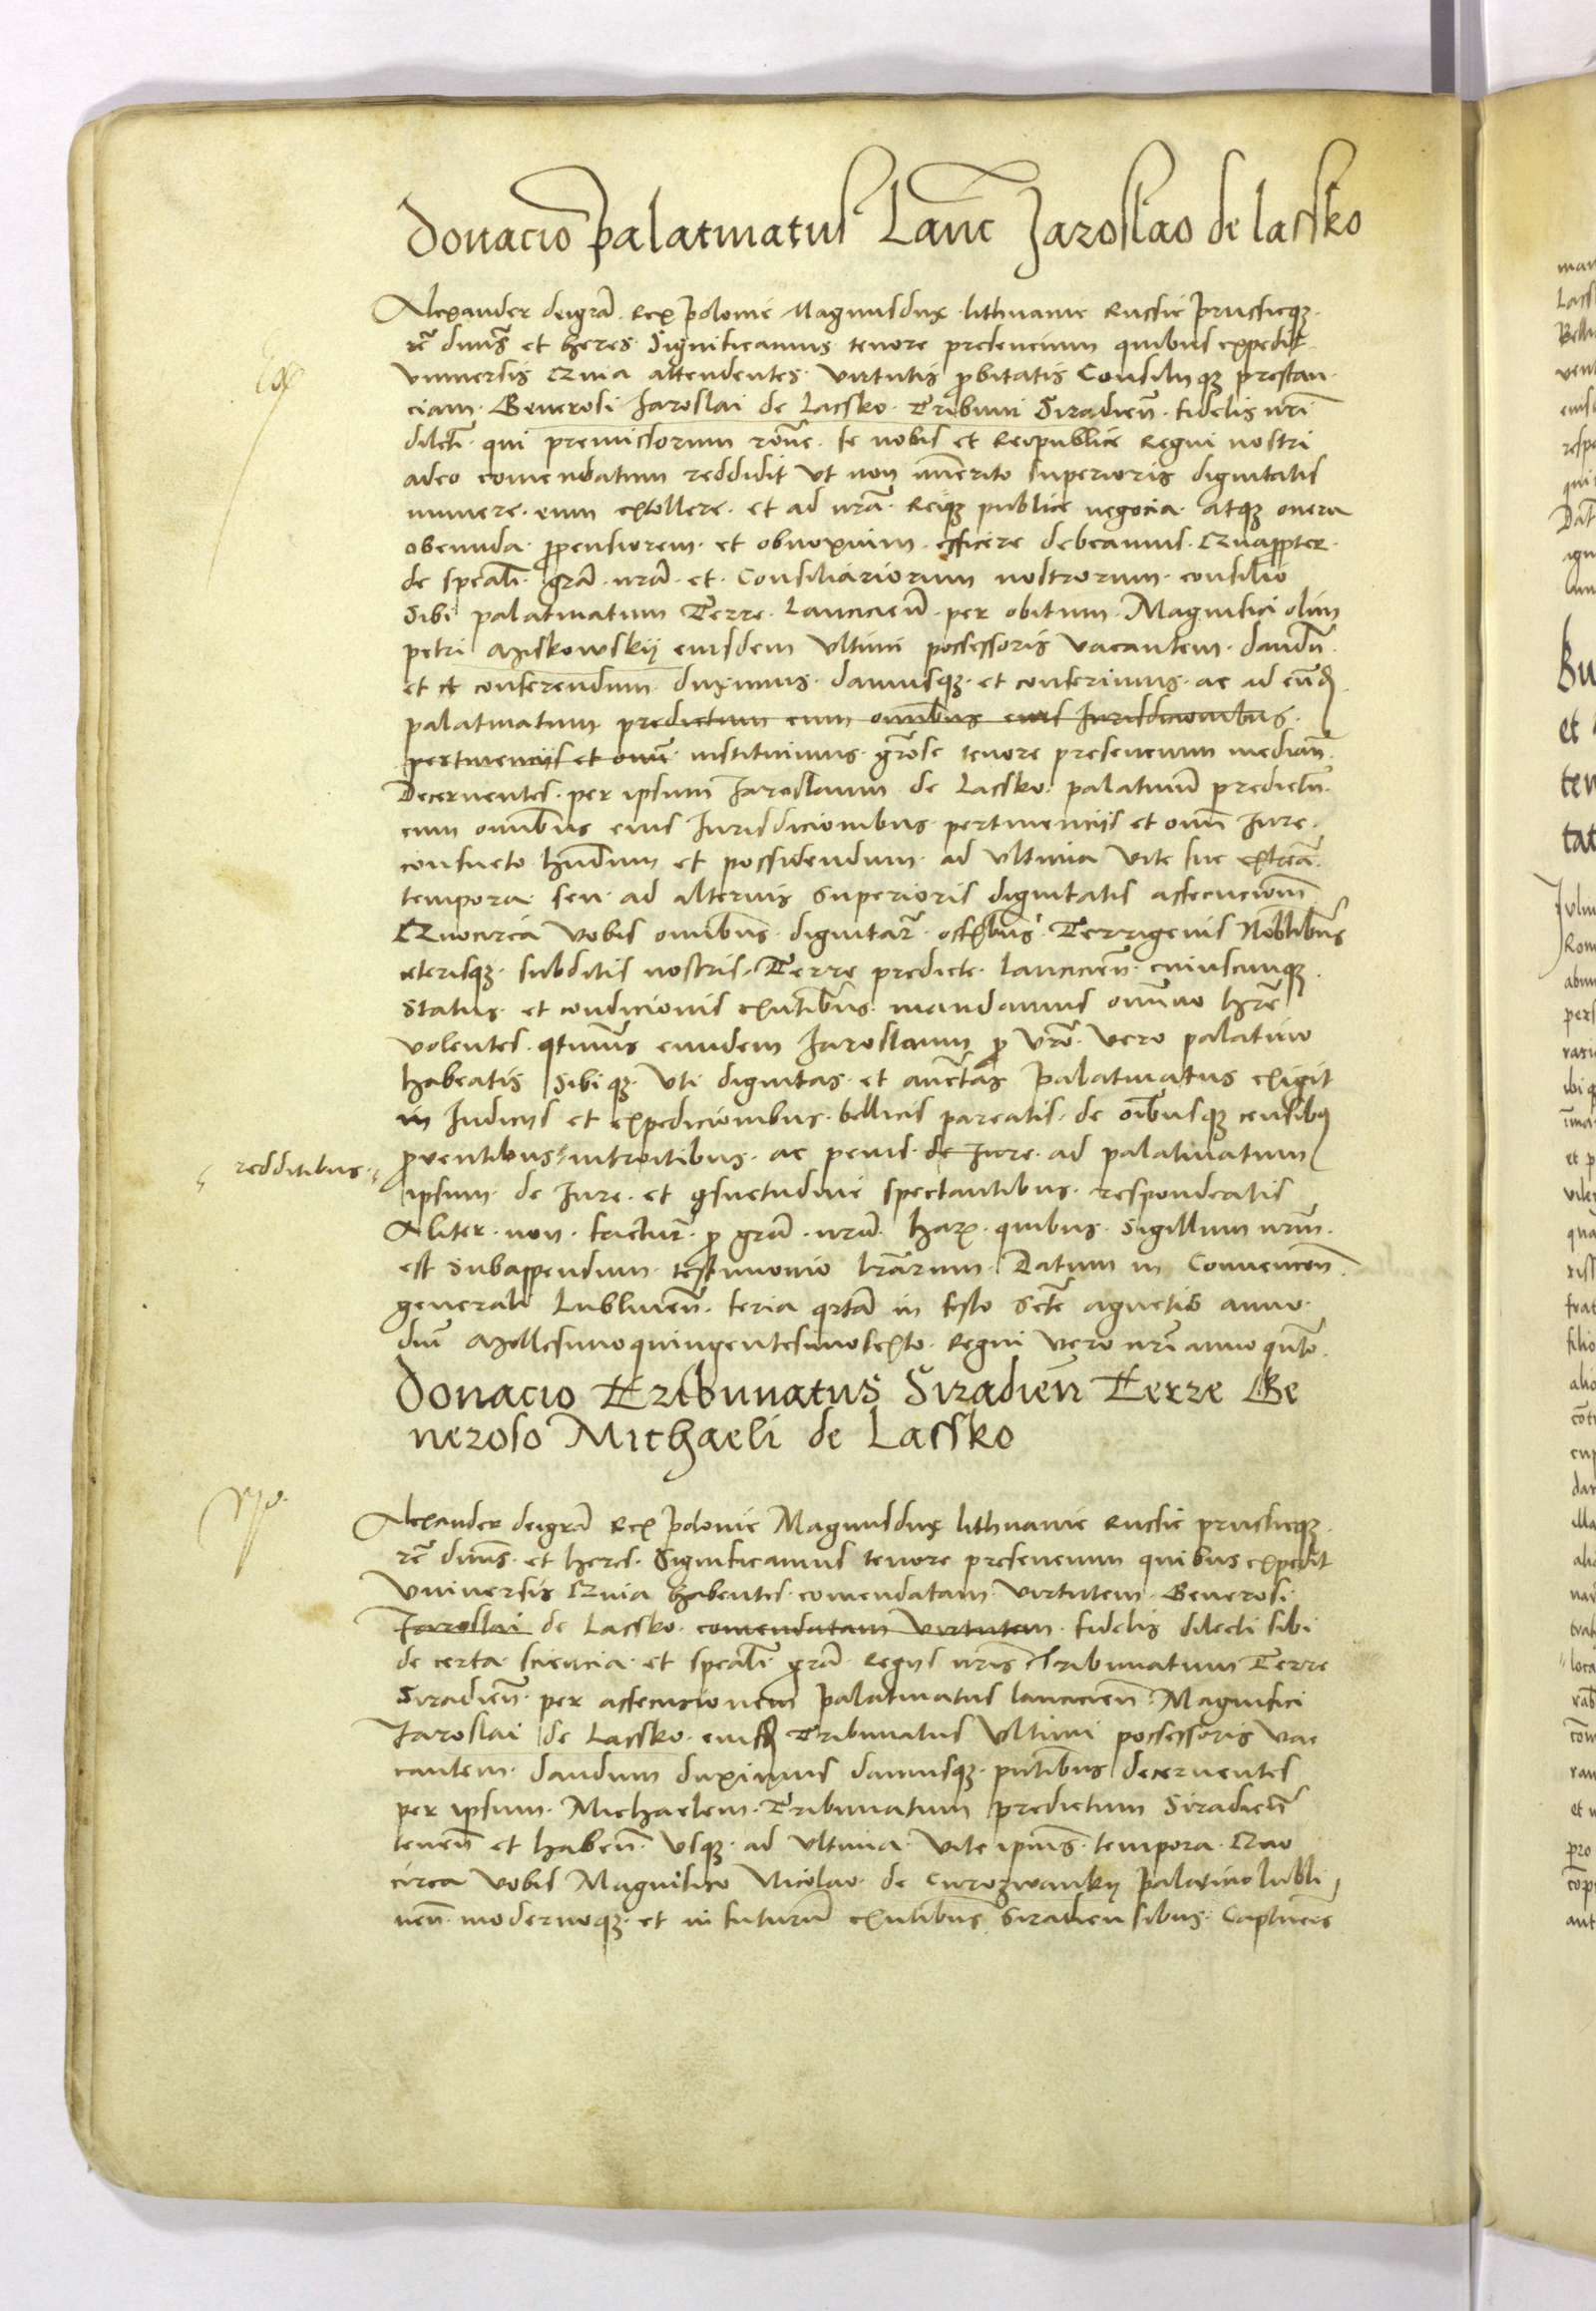 Donacio palatinatus Lanc Jaroslao de lassko
Alexander deigrā Rex polonie Magnusdux lithuanie Russie prussieqȝ
rē̄ dīnus et heres Significamus tenore presencium quibus expedit
vniuersis Quia attendentes virtutis probitatis Consiliiqȝ prestan
ciam Generosi Jaroslai de Lassko Tribuni Siradieñ fidelis nr̄i
dilcti qui premissorum rōne se nobis et Reipublice Regni nostri
adeo comendatum reddidit vt non īmerito superioris dignitatis
munere eum extollere et ad nrā Reiqȝ publice negocia atqȝ onera
obeunda propensiorem et obnoxium efficere debeamus Quapropter
de speāli grā nrā et Consiliariorum nostrorum consilio
Sibi palatinatum Terre Lancicieñ per obitum Magnifici olim
petri Miskowskij eiusdem vltimi possessoris vacantem dandū
et et conferendum duximus damusqȝ et conferimus ac ad eūd
palatinatum predictum cum omībus eius Jurisdicionibus
pertinencijs et omī instituimus grōse tenore presencium mediañ
Decernentes per ipsum Jaroslaum de Lassko palatinū predictū
cum omībus eius Jurisdicionibus pertinencijs et omī Jure
consueto hñdum et possidendum ad vltima vite sue extrēa
tempora seu ad alterius superioris dignitatis assecucionem
Quocirca vobis omibus dignitar offbus Terrigenis Nobilibus
ceterisqȝ subditis nostris Terre predicte Lancicieñ cuiuscunqȝ
status et condicionis exntibus mandamus omnino hrē
volentes qtinus eundem Jaroslaum p vro vero palatino
habeatis Sibiqȝ vti dignitas et auctas palatinatus exigit
in Judicijs et expedicionibus bellicis pareatis de oibusqȝ censibus
redditibus
prouentibus introitibus ac penis de Jure ad palatinatum
ipsum de Jure et cōsuetudine spectantibus respondeatis
Aliter non factur p grā nrā harum quibus sigillum nrm
est subappensum testimonio lrārum Datum in Conuencōne
generali Lublineñ feria qrtā in festo Scte agnetis anno
dnī Millesimoquingentesimosexto Regni vero nrī anno qnto
Donacio Tribunatus Siradieñ Terre Ge
neroso Michaeli de Lassko
Alexander deigrā Rex polonie Magnusdux lithuanie Russie prussieqȝ
rē̄ dnīus et heres Significamus tenore presencium quibus expedit
Vniuersis Quia habentes comendatam virtutem Generosi
Jaroslai de Lassko comendatam virtutem fidelis dilecti sibi
de certa sciencia et speāli grā Regijs nrīs Tribunatum Terre
Siradieñ per assecucionem palatinatus lancicieñ Magnifici
Jaroslai de Lassko eiusd Tribunatus vltimi possessoris vac
cantem dandum duximus damusqȝ pntibus decernentes
per ipsum Michaelem Tribunatum predictum Siradieñ
teneñ et habeñ vsqȝ ad vltima vite ipius tempora Quo
circa vobis Magnifico Nicolao de Curozwanky Palatino lubli
neñ modernoqȝ et in futurū exntibus Siradiensibus Captneis